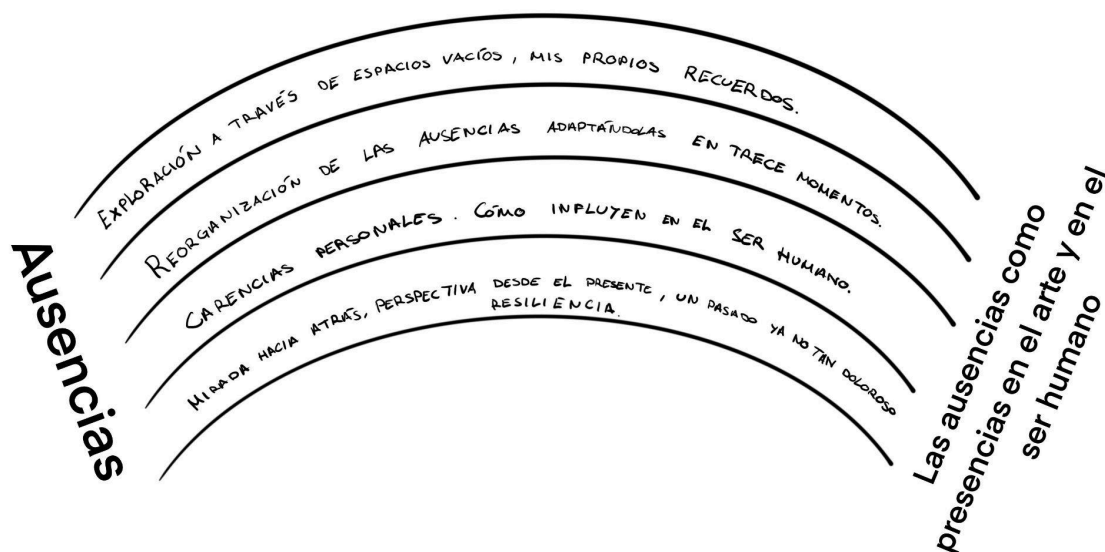 Ausencias
EXPLORACIÓN A TRAVÉS DE ESPACIOS VACÍOS, MIS PROPIOS RECUERDOS.
REORGANIZACIÓN DE LAS AUSENCIAS ADAPTÁNDOLAS EN TRECE MOMENTOS.
CARENCIAS PERSONALES. CÓMO INFLUYEN EN EL SER HUMANO.
MIRADA HACIA ATRÁS, PERSPECTIVA DESDE EL PRESENTE, UN PASADO YA NO TAN DOLOROSO
RESILIENCIA.
Las ausencias como
presencias en el arte y en el
ser humano